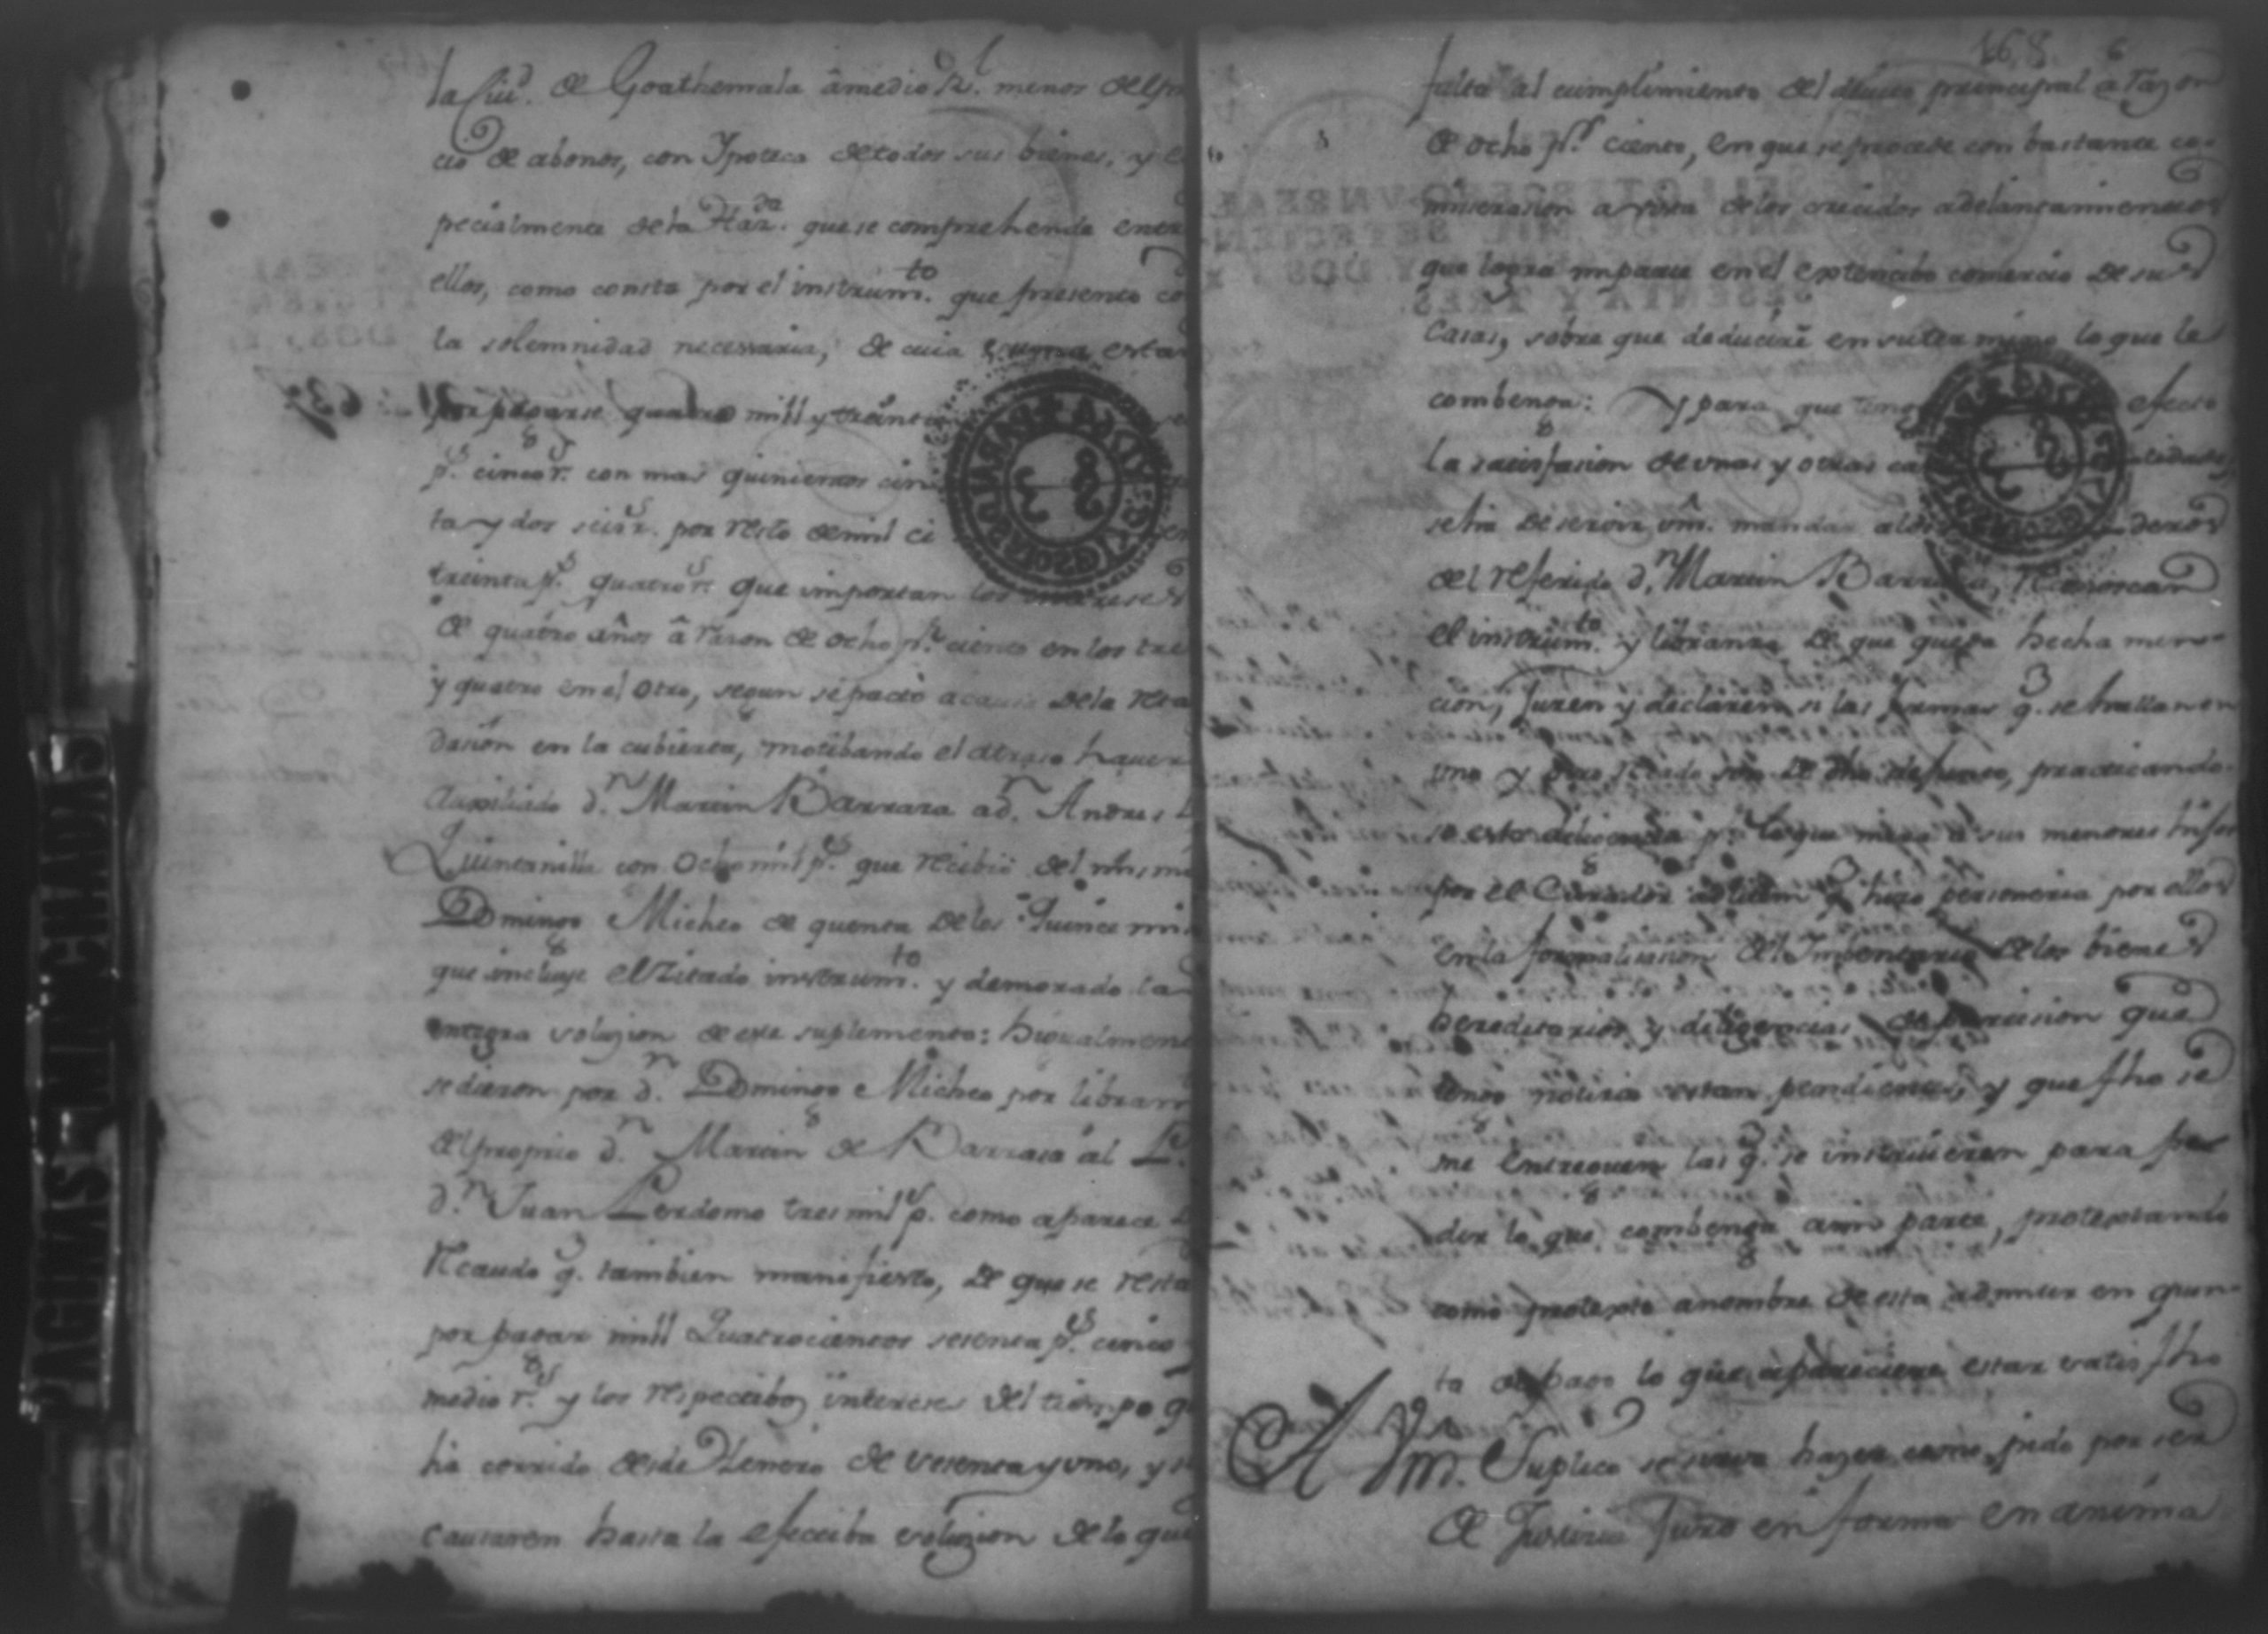 la Ciud. de Goathemala â medio Rl. menor del pre
cio de abonos, con Ypoteca de todos sus bienes, y es
pecialmente de la Hazda. que se comprehende entre
ellos, como consta por el instrumto. que presento co
la solemnidad necessaria, de cuia suma esta
por pagarse quatro mill y treinta
ps. cinco rs. con mas quinientos cin
ta y dos seis rs. por resto de mil ci
treinta ps. quatro rs. que importan los intereses
de quatro años â razon de ocho pr. ciento en los tres
y quatro en el otro, segun se pactó a causa de la reta
dasion en la cubierta, motibando el atraso haver
auxiliado dn. Martin Barrara a dn. Andres
Quintanilla con ocho mil ps. que recibió del mismo
Domingo Micheo de quenta de los Quince mil
que incluye el zitado instrumto. y demorado la
entera soluzion de este suplemento: higualmente
se dieron por dn. Domingo Micheo por libran
del proprio dn. Martin de Barrara al L.
dn. Juan Perdomo tres mil ps. como aparece
Recaudo q. tambien manifiesto, de que se resta
por pagar mill Quatrocientos sesenta ps. cinco
medio rs. y los respectibos intereses del tiempo q
ha corrido desde Henero de sesenta y uno, y se
causaren hasta la efectiba soluzion de lo que
168 6
falta al cumplimiento del principal â razon
de ocho pr. ciento, en que se procede con bastante co-
miserasion a vista de los crecidos adelantamientos
que logra mi parte en el extendido comercio de su
Casa, sobre que deduciré en su termino lo que le
combenga: Y para que tenga efecto
la satisfasion de unas y otras ca
se ha de servir vm. mandar a los deros
del referido dn. Martin Barrara, reconoscan
el instrumto. y libranza de que queda hecha men-
cion, juren y declaren si las firmas q. se hallan en
uno y otro son de dho defunto, practicando-
se esta diligencia pr. lo que mira a sus menores hijos
por el Curador ad litem q. hizo personeria por ellos
en la formalisasion del Imbentario de los bienes
hereditarios y diligencias de particion que
tengo noticia estan pendientes, y que fho se
me entreguen las q. se instruieren para pe
dir lo que combenga a mi parte, protextando
como protexto a nombre de esta admitir en quen-
ta de pago lo que apareciere estar satisfho
A Vm. Suplico se sirva hazer como pido por ser
de Justicia Juro en forma en anima